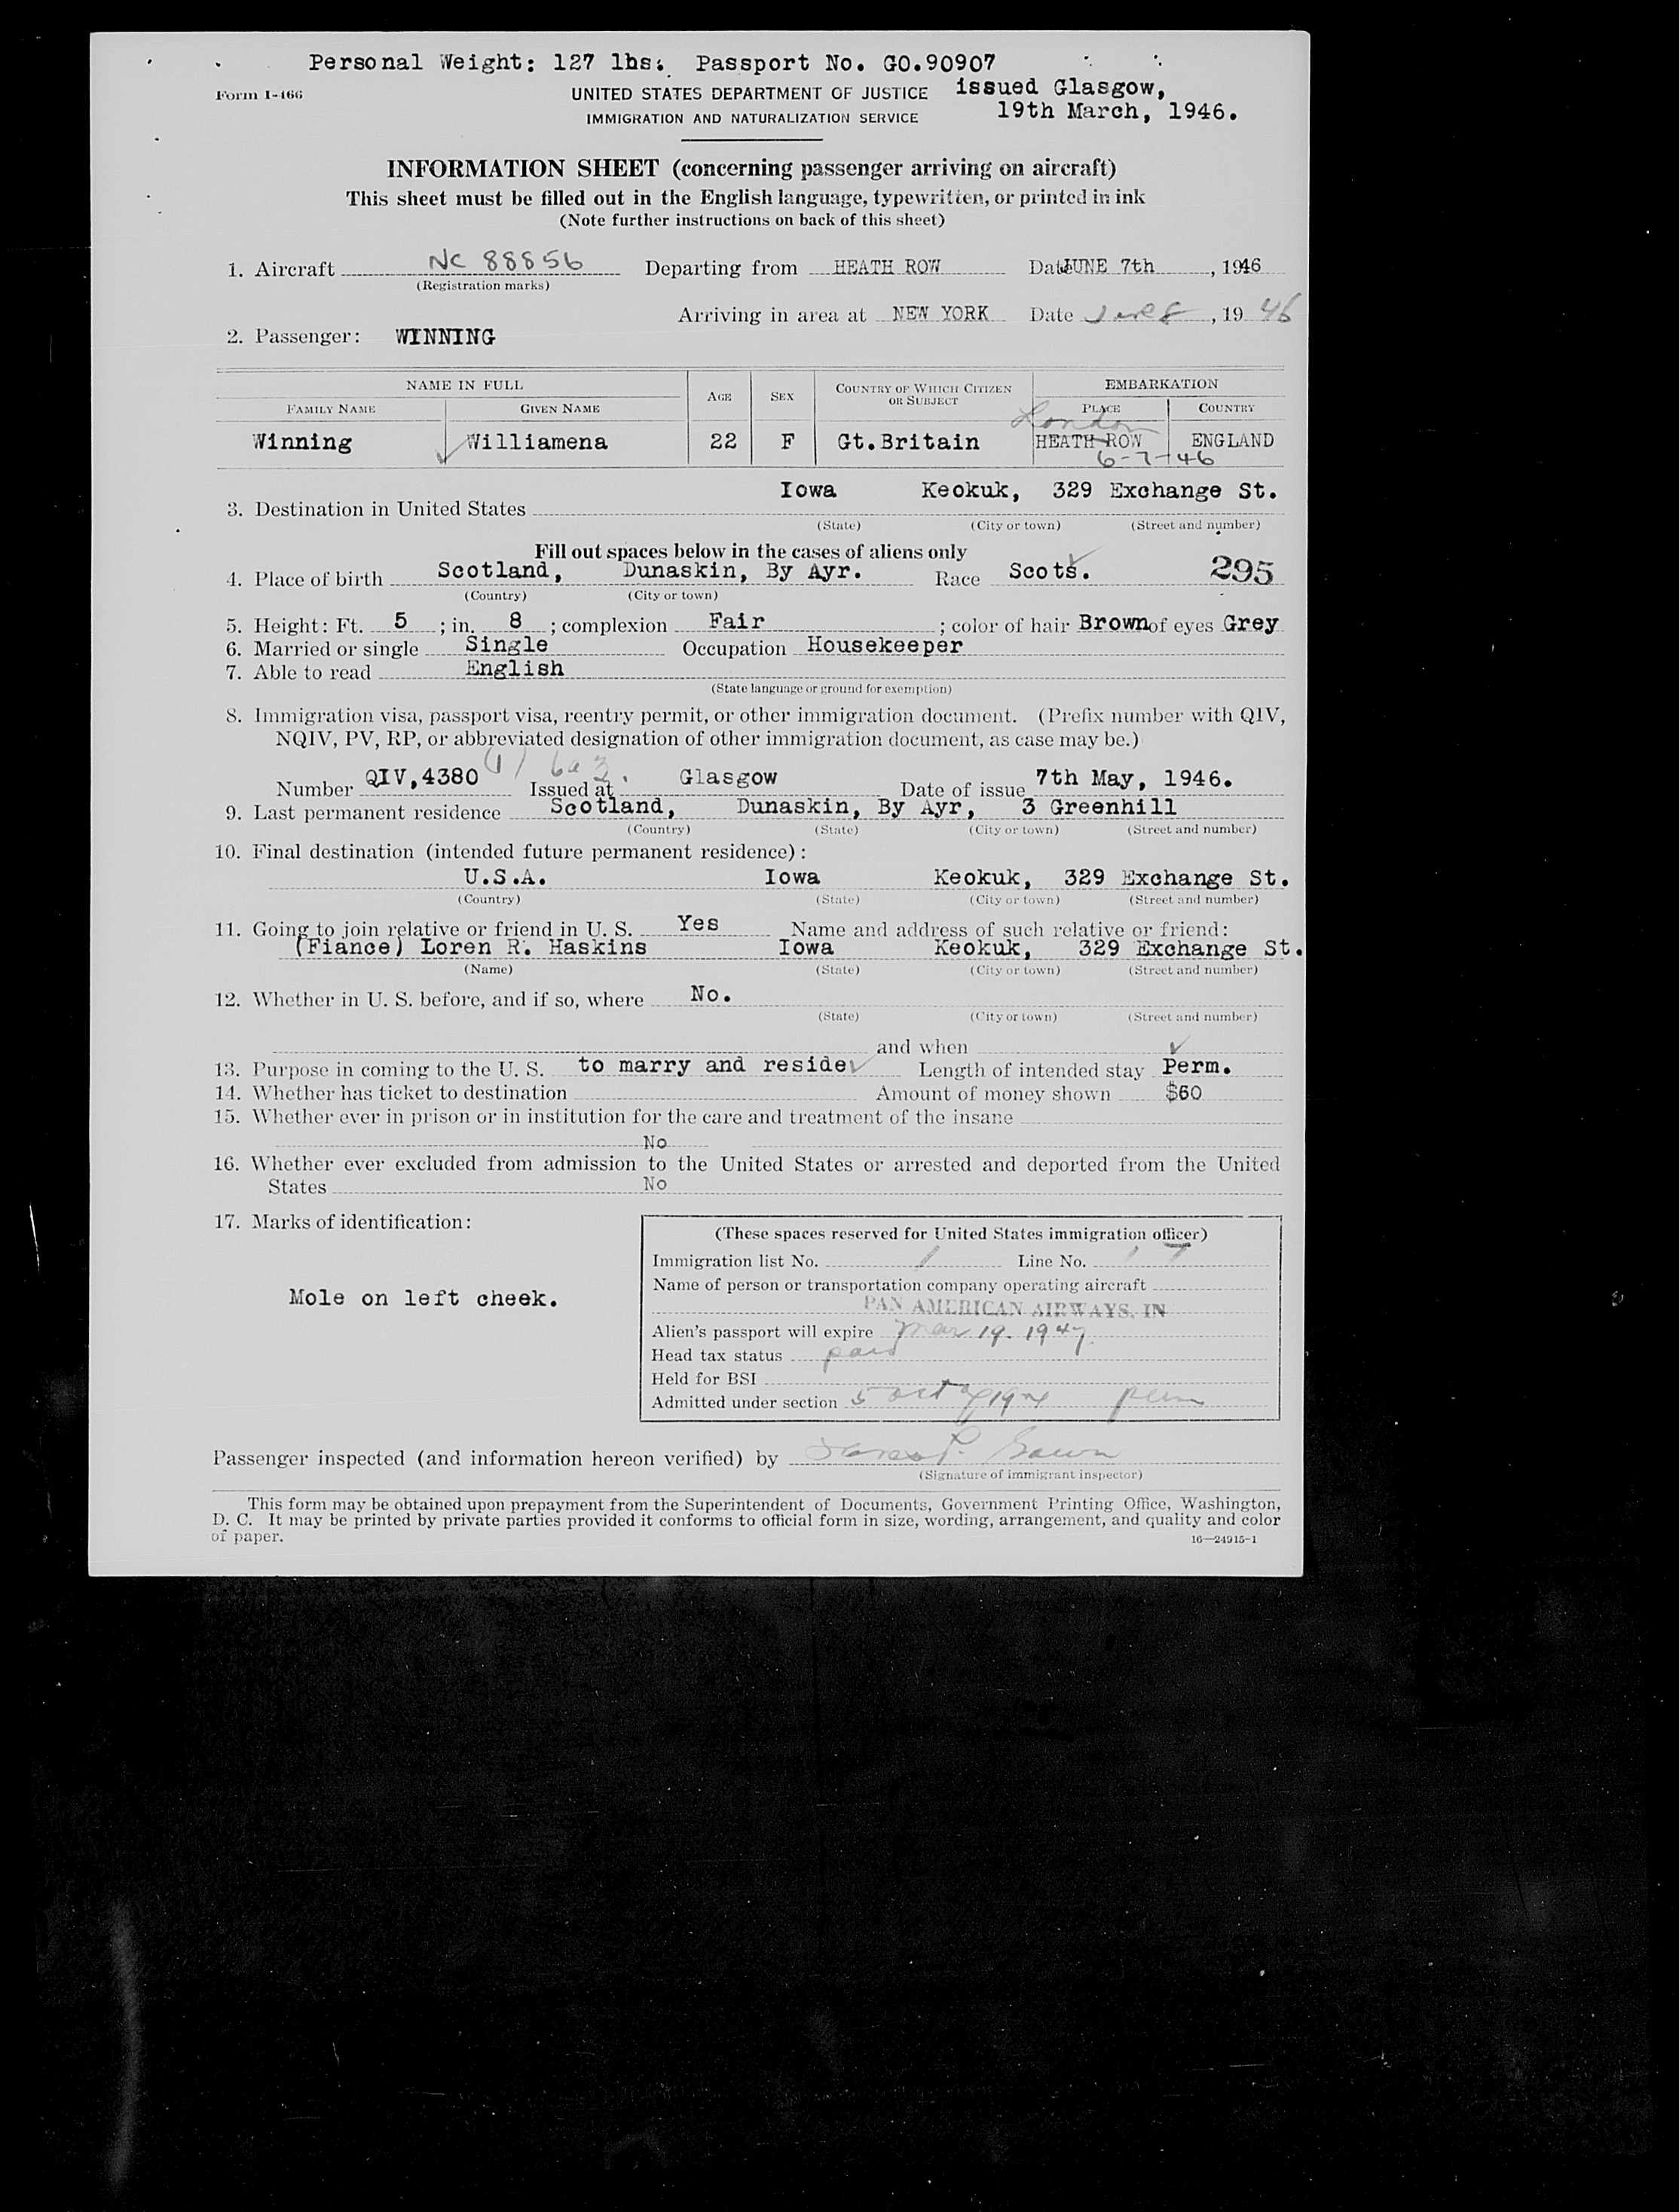 Personal Weight: 127 lbs. Passport No. GO.90907
Form I-466
UNITED STATES DEPARTMENT OF JUSTICE
issued Glasgow,
IMMIGRATION AND NATURALIZATION SERVICE
19th March, 1946.
INFORMATION SHEET (concerning passenger arriving on aircraft)
This sheet must be filled out in the English language, typewritten, or printed in ink
(Note further instructions on back of this sheet)
1. Aircraft NC 88856 Departing from HEATH ROW Date JUNE 7th, 1946
(Registration marks)
Arriving in area at NEW YORK Date June 8, 19 46
2. Passenger: WINNING
NAME IN FULL AGE SEX COUNTRY OF WHICH CITIZEN OR SUBJECT EMBARKATION
FAMILY NAME GIVEN NAME PLACE COUNTRY
London
Winning Williamena 22 F Gt.Britain HEATH ROW ENGLAND
6-7-46
Iowa Keokuk, 329 Exchange St.
3. Destination in United States
(State) (City or town) (Street and number)
Fill out spaces below in the cases of aliens only
4. Place of birth Scotland, Dunaskin, By Ayr. Race Scots. 295
(Country) (City or town)
5. Height: Ft. 5; in. 8; complexion Fair; color of hair Brown of eyes Grey
6. Married or single Single Occupation Housekeeper
7. Able to read English
(State language or ground for exemption)
8. Immigration visa, passport visa, reentry permit, or other immigration document. (Prefix number with QIV,
NQIV, PV, RP, or abbreviated designation of other immigration document, as case may be.)
Number QIV,4380 Issued at Glasgow Date of issue 7th May, 1946.
9. Last permanent residence Scotland, Dunaskin, By Ayr, 3 Greenhill
(Country) (State) (City or town) (Street and number)
10. Final destination (intended future permanent residence):
U.S.A. Iowa Keokuk, 329 Exchange St.
(Country) (State) (City or town) (Street and number)
11. Going to join relative or friend in U. S. Yes Name and address of such relative or friend:
(Fiance) Loren R. Haskins Iowa Keokuk, 329 Exchange St.
(Name) (State) (City or town) (Street and number)
12. Whether in U. S. before, and if so, where No.
(State) (City or town) (Street and number)
and when
13. Purpose in coming to the U. S. to marry and reside Length of intended stay Perm.
14. Whether has ticket to destination Amount of money shown $60
15. Whether ever in prison or in institution for the care and treatment of the insane
No
16. Whether ever excluded from admission to the United States or arrested and deported from the United
States No
17. Marks of identification:
Mole on left cheek.
(These spaces reserved for United States immigration officer)
Immigration list No. 1 Line No. 17
Name of person or transportation company operating aircraft
PAN AMERICAN AIRWAYS, IN
Alien's passport will expire Mar 19. 1947
Head tax status paid
Held for BSI
Admitted under section 5 act of 1924 perm
Passenger inspected (and information hereon verified) by
(Signature of immigrant inspector)
This form may be obtained upon prepayment from the Superintendent of Documents, Government Printing Office, Washington,
D. C. It may be printed by private parties provided it conforms to official form in size, wording, arrangement, and quality and color
of paper.
16—24915-1